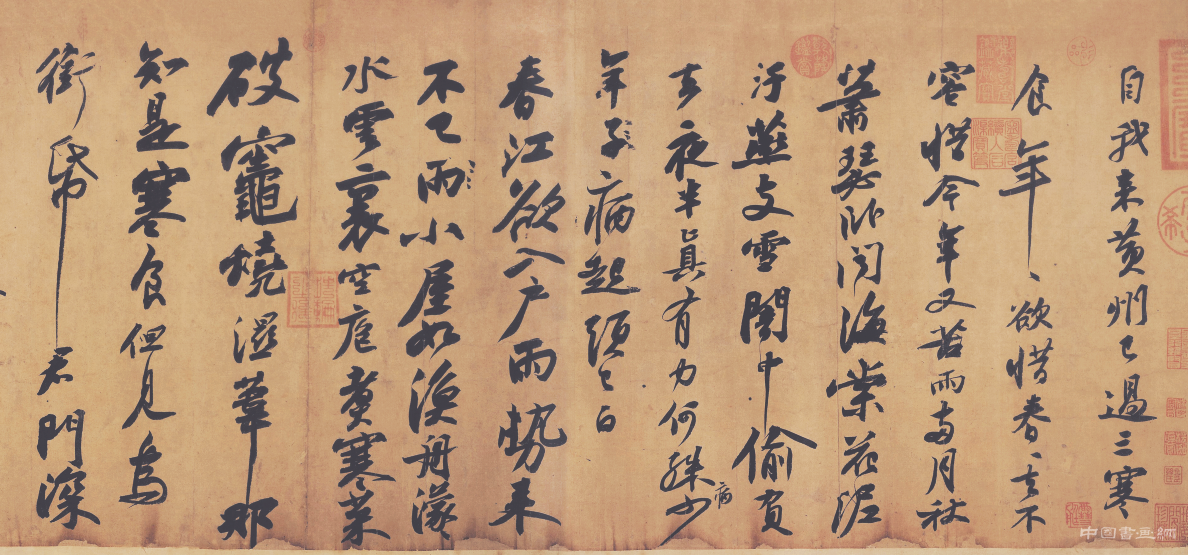 自我来黄州已過三寒
食年〻欲惜春〻去不
容惜今年又苦雨兩月秋
蕭瑟卧聞海棠花泥
汙燕支雪闇中偷負
去夜半真有力何殊少
年子病起頭已白
病
春江欲入户雨勢来
不已雨小屋如漁舟濛〻
水雲裏空庖煮寒菜
破竈燒濕葦那
知是寒食但見烏
銜帋君門深
中国書画網